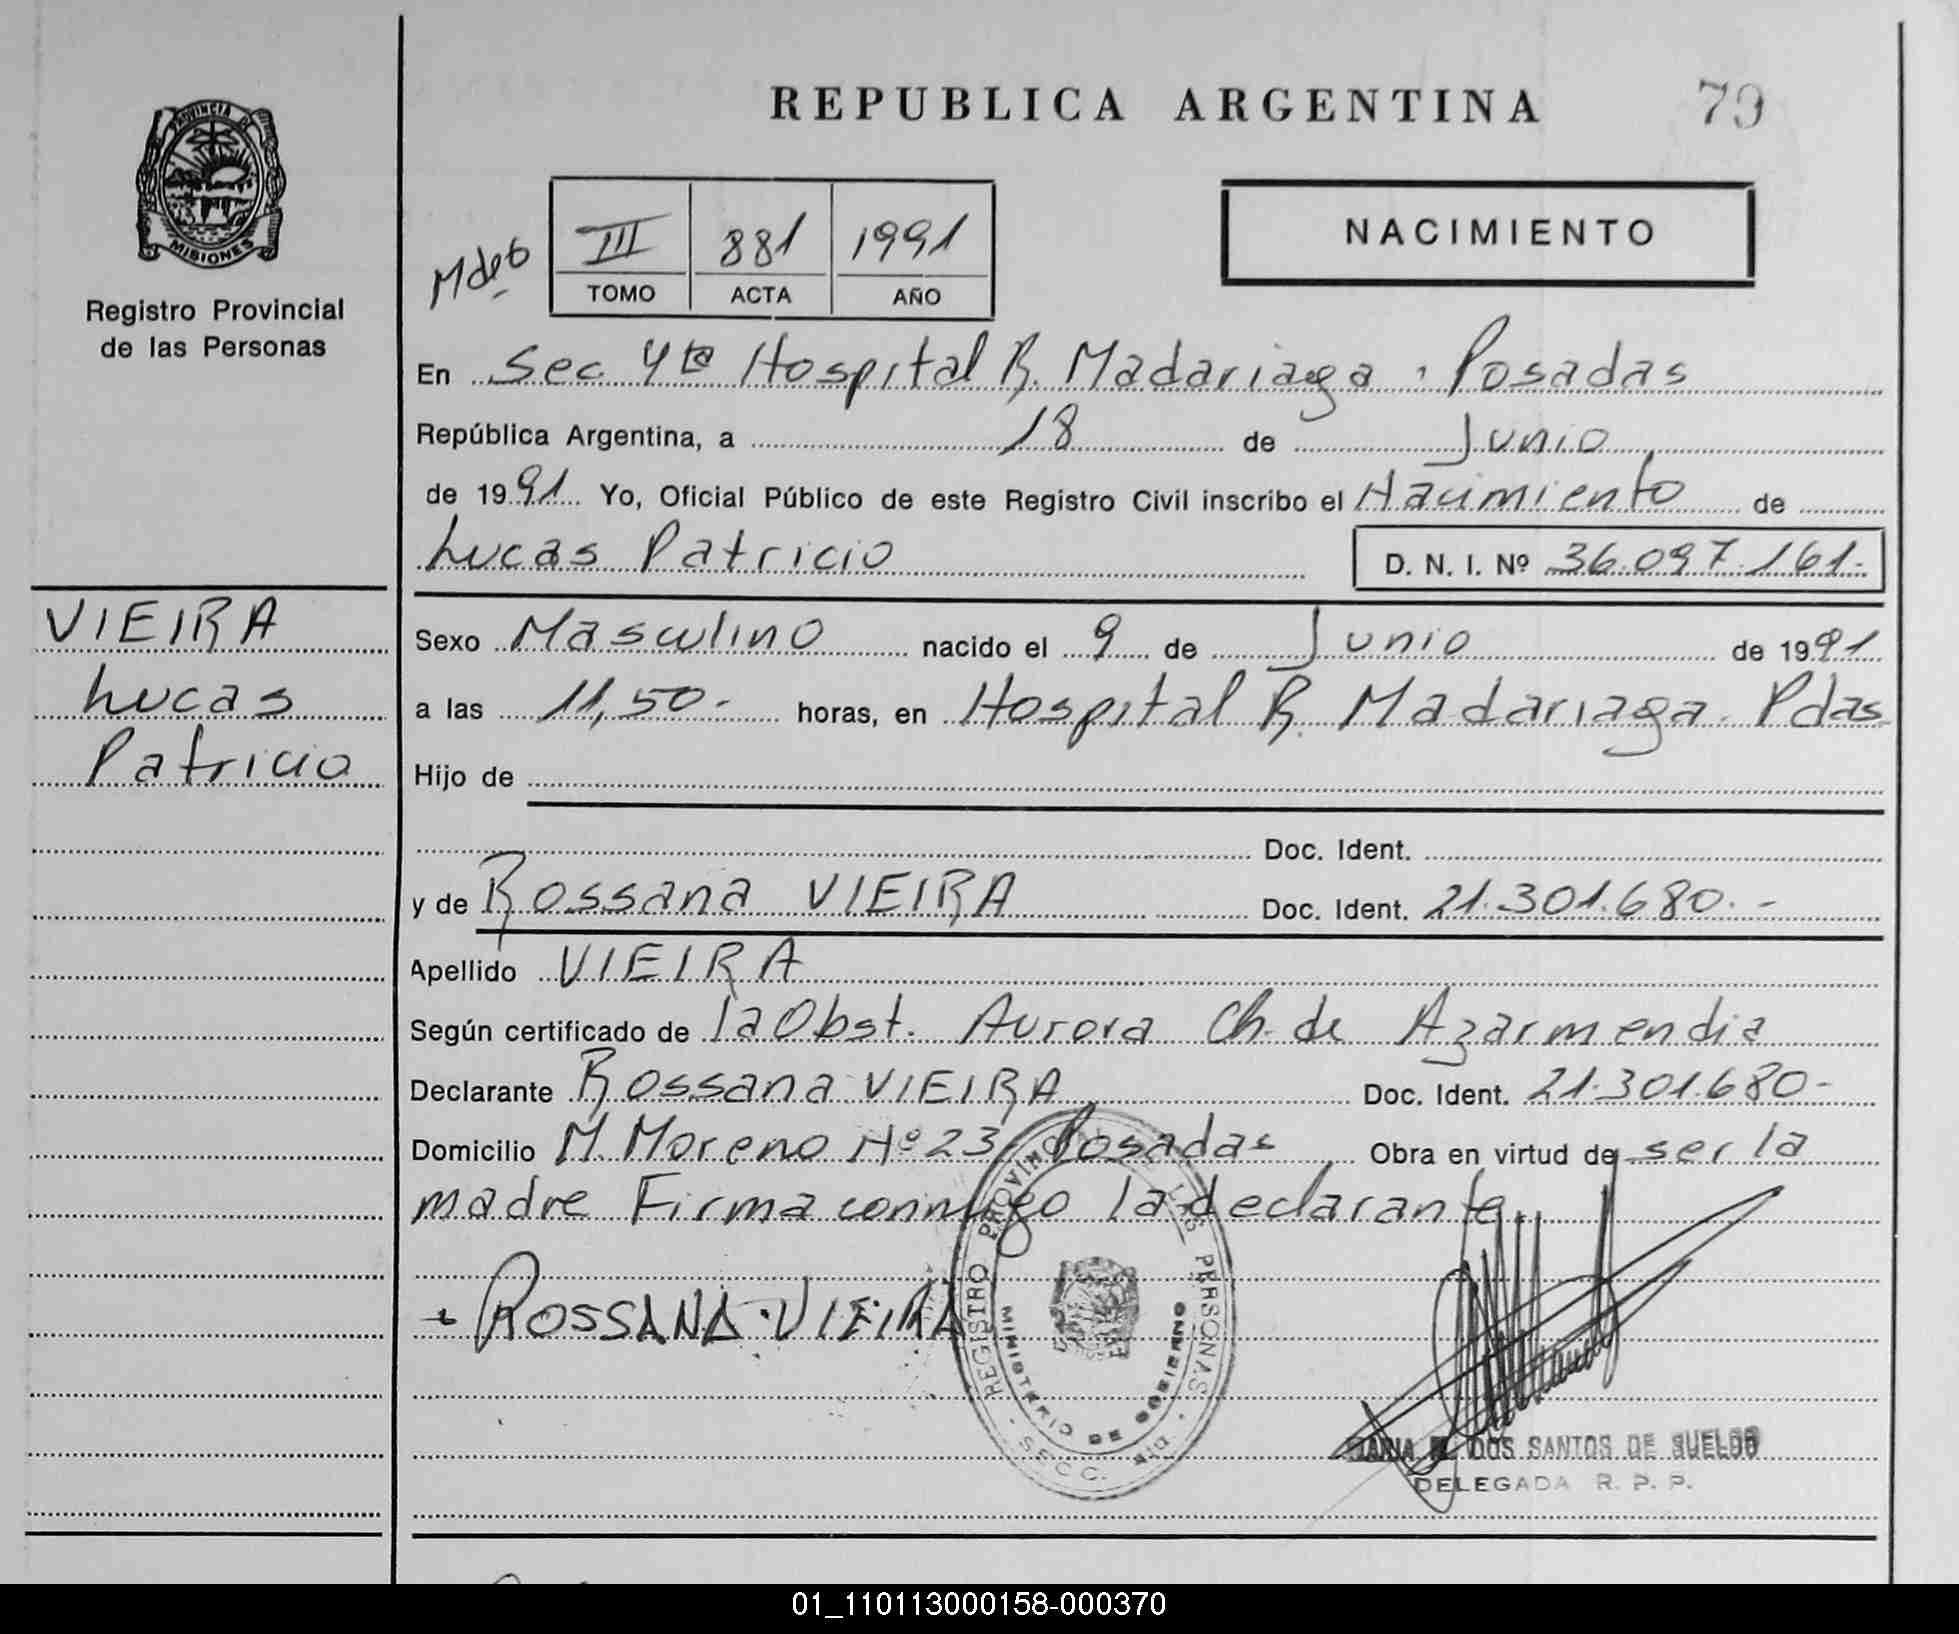 REPUBLICA ARGENTINA
79
PROVINCIA DE
MISIONES
Registro Provincial
de las Personas
III 881 1991
TOMO ACTA AÑO
NACIMIENTO
En Sec 4ta Hospital R. Madariaga . Posadas
República Argentina, a 18 de Junio
de 1991 Yo, Oficial Público de este Registro Civil inscribo el Nacimiento de
Lucas Patricio
D. N. I. Nº 36.097.161.-
VIEIRA
Lucas
Patricio
Sexo Masculino nacido el 9 de Junio de 1991
a las 11,50.- horas, en Hospital R. Madariaga. Pdas
Hijo de
Doc. Ident.
y de Rossana VIEIRA Doc. Ident. 21.301.680.-
Apellido VIEIRA
Según certificado de la Obst. Aurora Ch. de Azarmendia
Declarante Rossana VIEIRA Doc. Ident. 21.301.680-
Domicilio M. Moreno Nº 23 Posadas Obra en virtud de ser la
madre Firma conmigo la declarante
ROSSANA.VIEIRA
REGISTRO PROVINCIAL DE LAS PERSONAS
MINISTERIO DE GOBIERNO
SECC. 4ta
DOS SANTOS DE SUELDO
DELEGADA R. P. P.
01_110113000158-000370